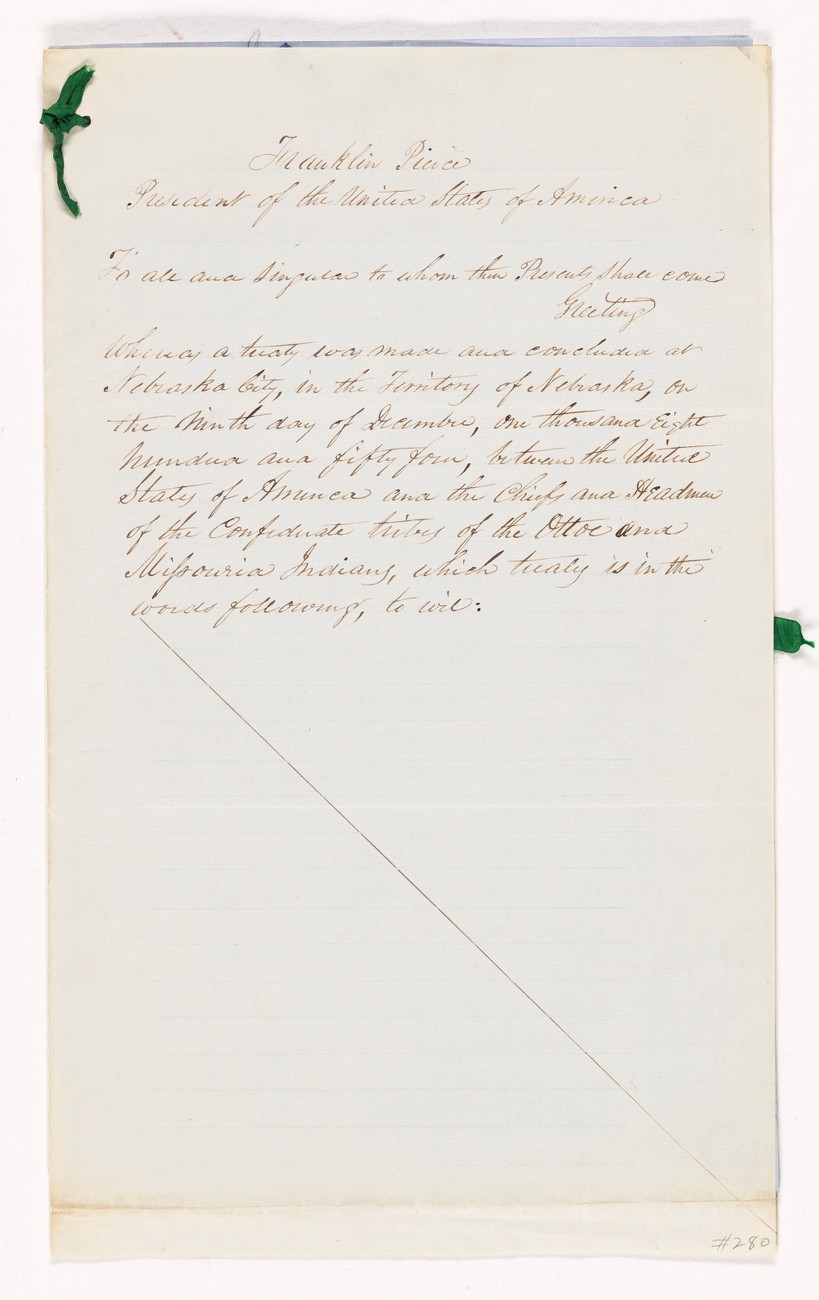 Franklin Pierce
President of the United States of America
To all and singular to whom these Presents shall come
Greeting
Whereas a treaty was made and concluded at
Nebraska City, in the Territory of Nebraska, on
the Ninth day of December, one thousand eight
hundred and fifty four, between the United
States of America and the Chiefs and Headmen
of the Confederate tribes of the Ottoe and
Missouria Indians, which treaty is in the
words following, to wit:
#280